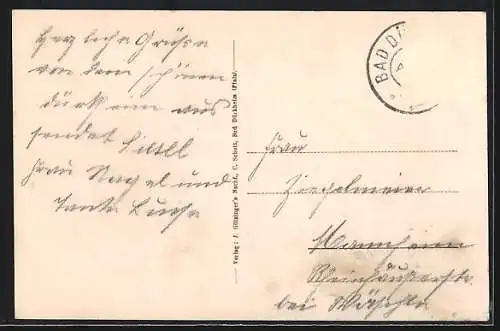 Herzliche Grüße
von dem schönen
Dürkheim aus
sendet
Frau Nagel und
Tante Luise
Verlag: J. Gilsinger's Nachf., C. Scholl, Bad Dürkheim (Pfalz).
BAD DÜ
Frau
Ziegelmeier
Mannheim
Rheinhäuserstr.
bei